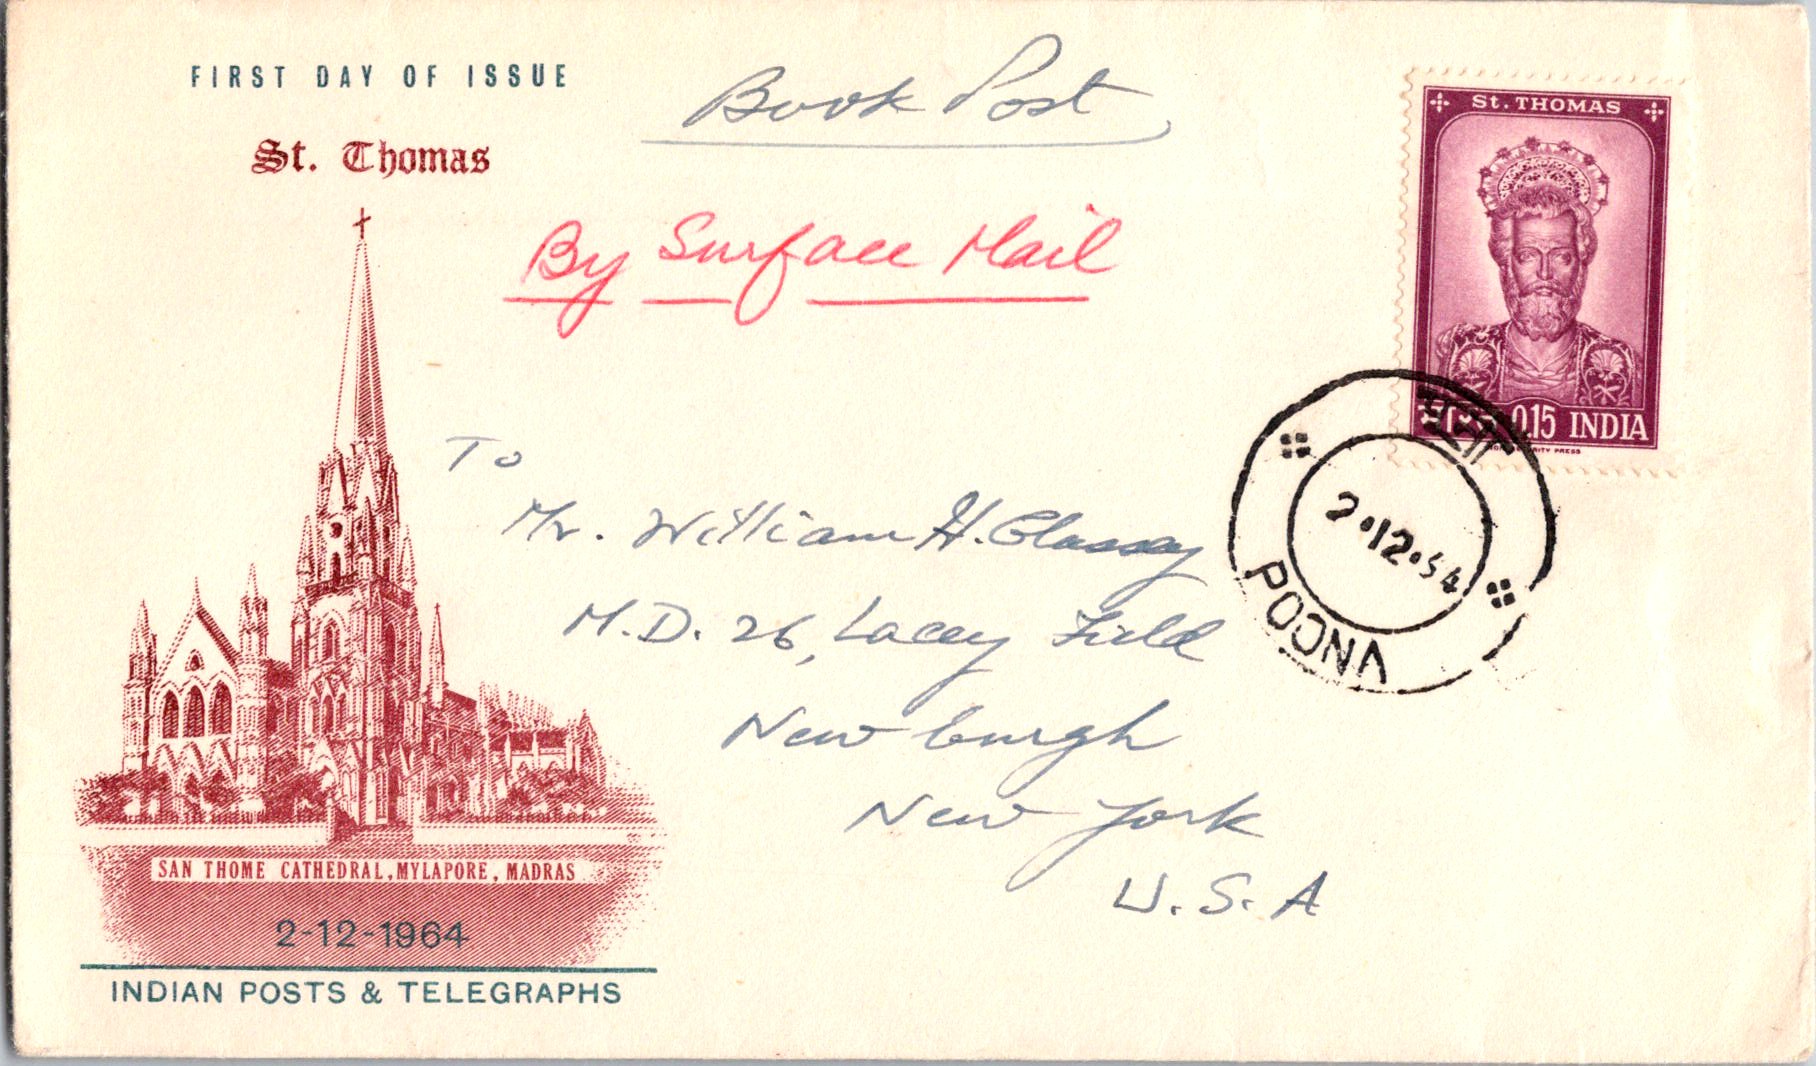 FIRST DAY OF ISSUE
St. Thomas
Book Post
By Surface Mail
St. THOMAS
0.15 INDIA
To
Mr. William H. Glassey
M.D. 26, Lacey Field
Newburgh
New York
U.S.A
2.12.64
POONA
SAN THOME CATHEDRAL, MYLAPORE, MADRAS
2-12-1964
INDIAN POSTS & TELEGRAPHS